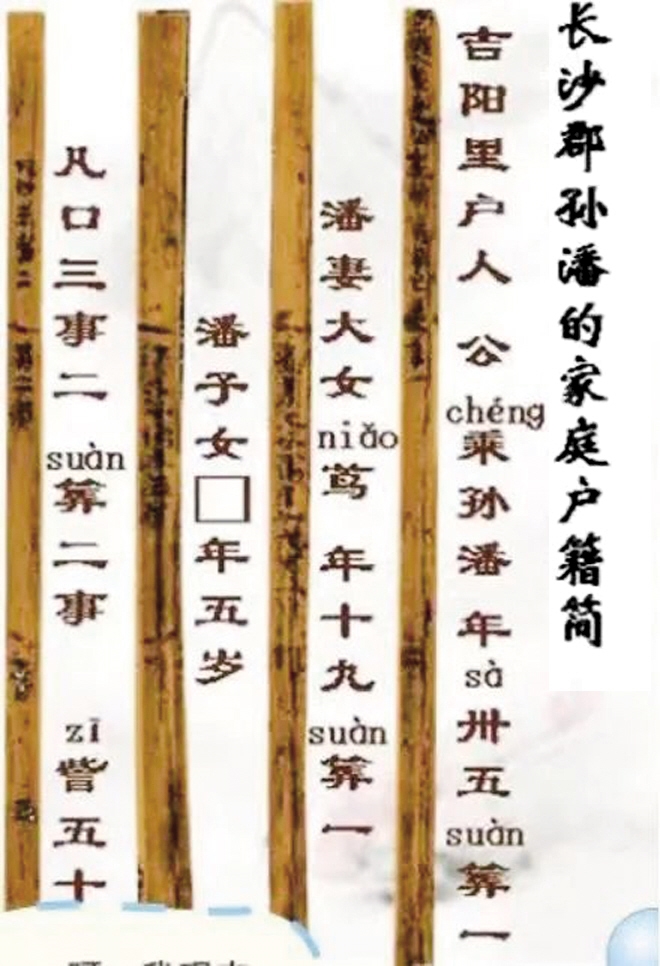 长沙郡孙潘的家庭户籍简
吉阳里户人 公乘孙潘 年卅五筭一
chéng
sà
suàn
潘妻大女茑 年十九筭一
niǎo
suàn
潘子女□年五岁
凡口三事二筭二事 訾五十
suàn
zī